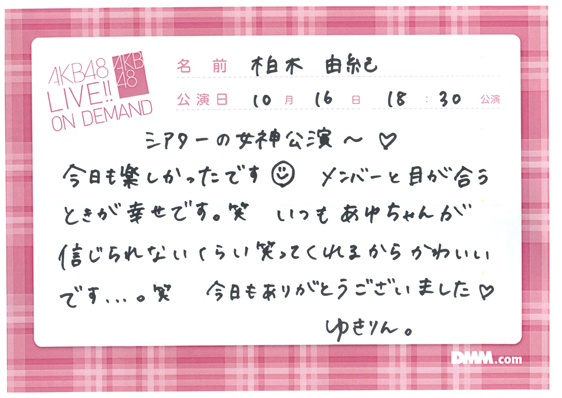 AKB48
LIVE!!
ON DEMAND
AKB
48
名前 柏木 由紀
公演日 10月 16日 18:30公演
シアターの女神公演〜♡
今日も楽しかったです☺ メンバーと目が合う
ときが幸せです。笑 いつもあゆちゃんが
信じられないくらい笑ってくれるからかわいい
です...。笑 今日もありがとうございました♡
ゆきりん。
DMM.com